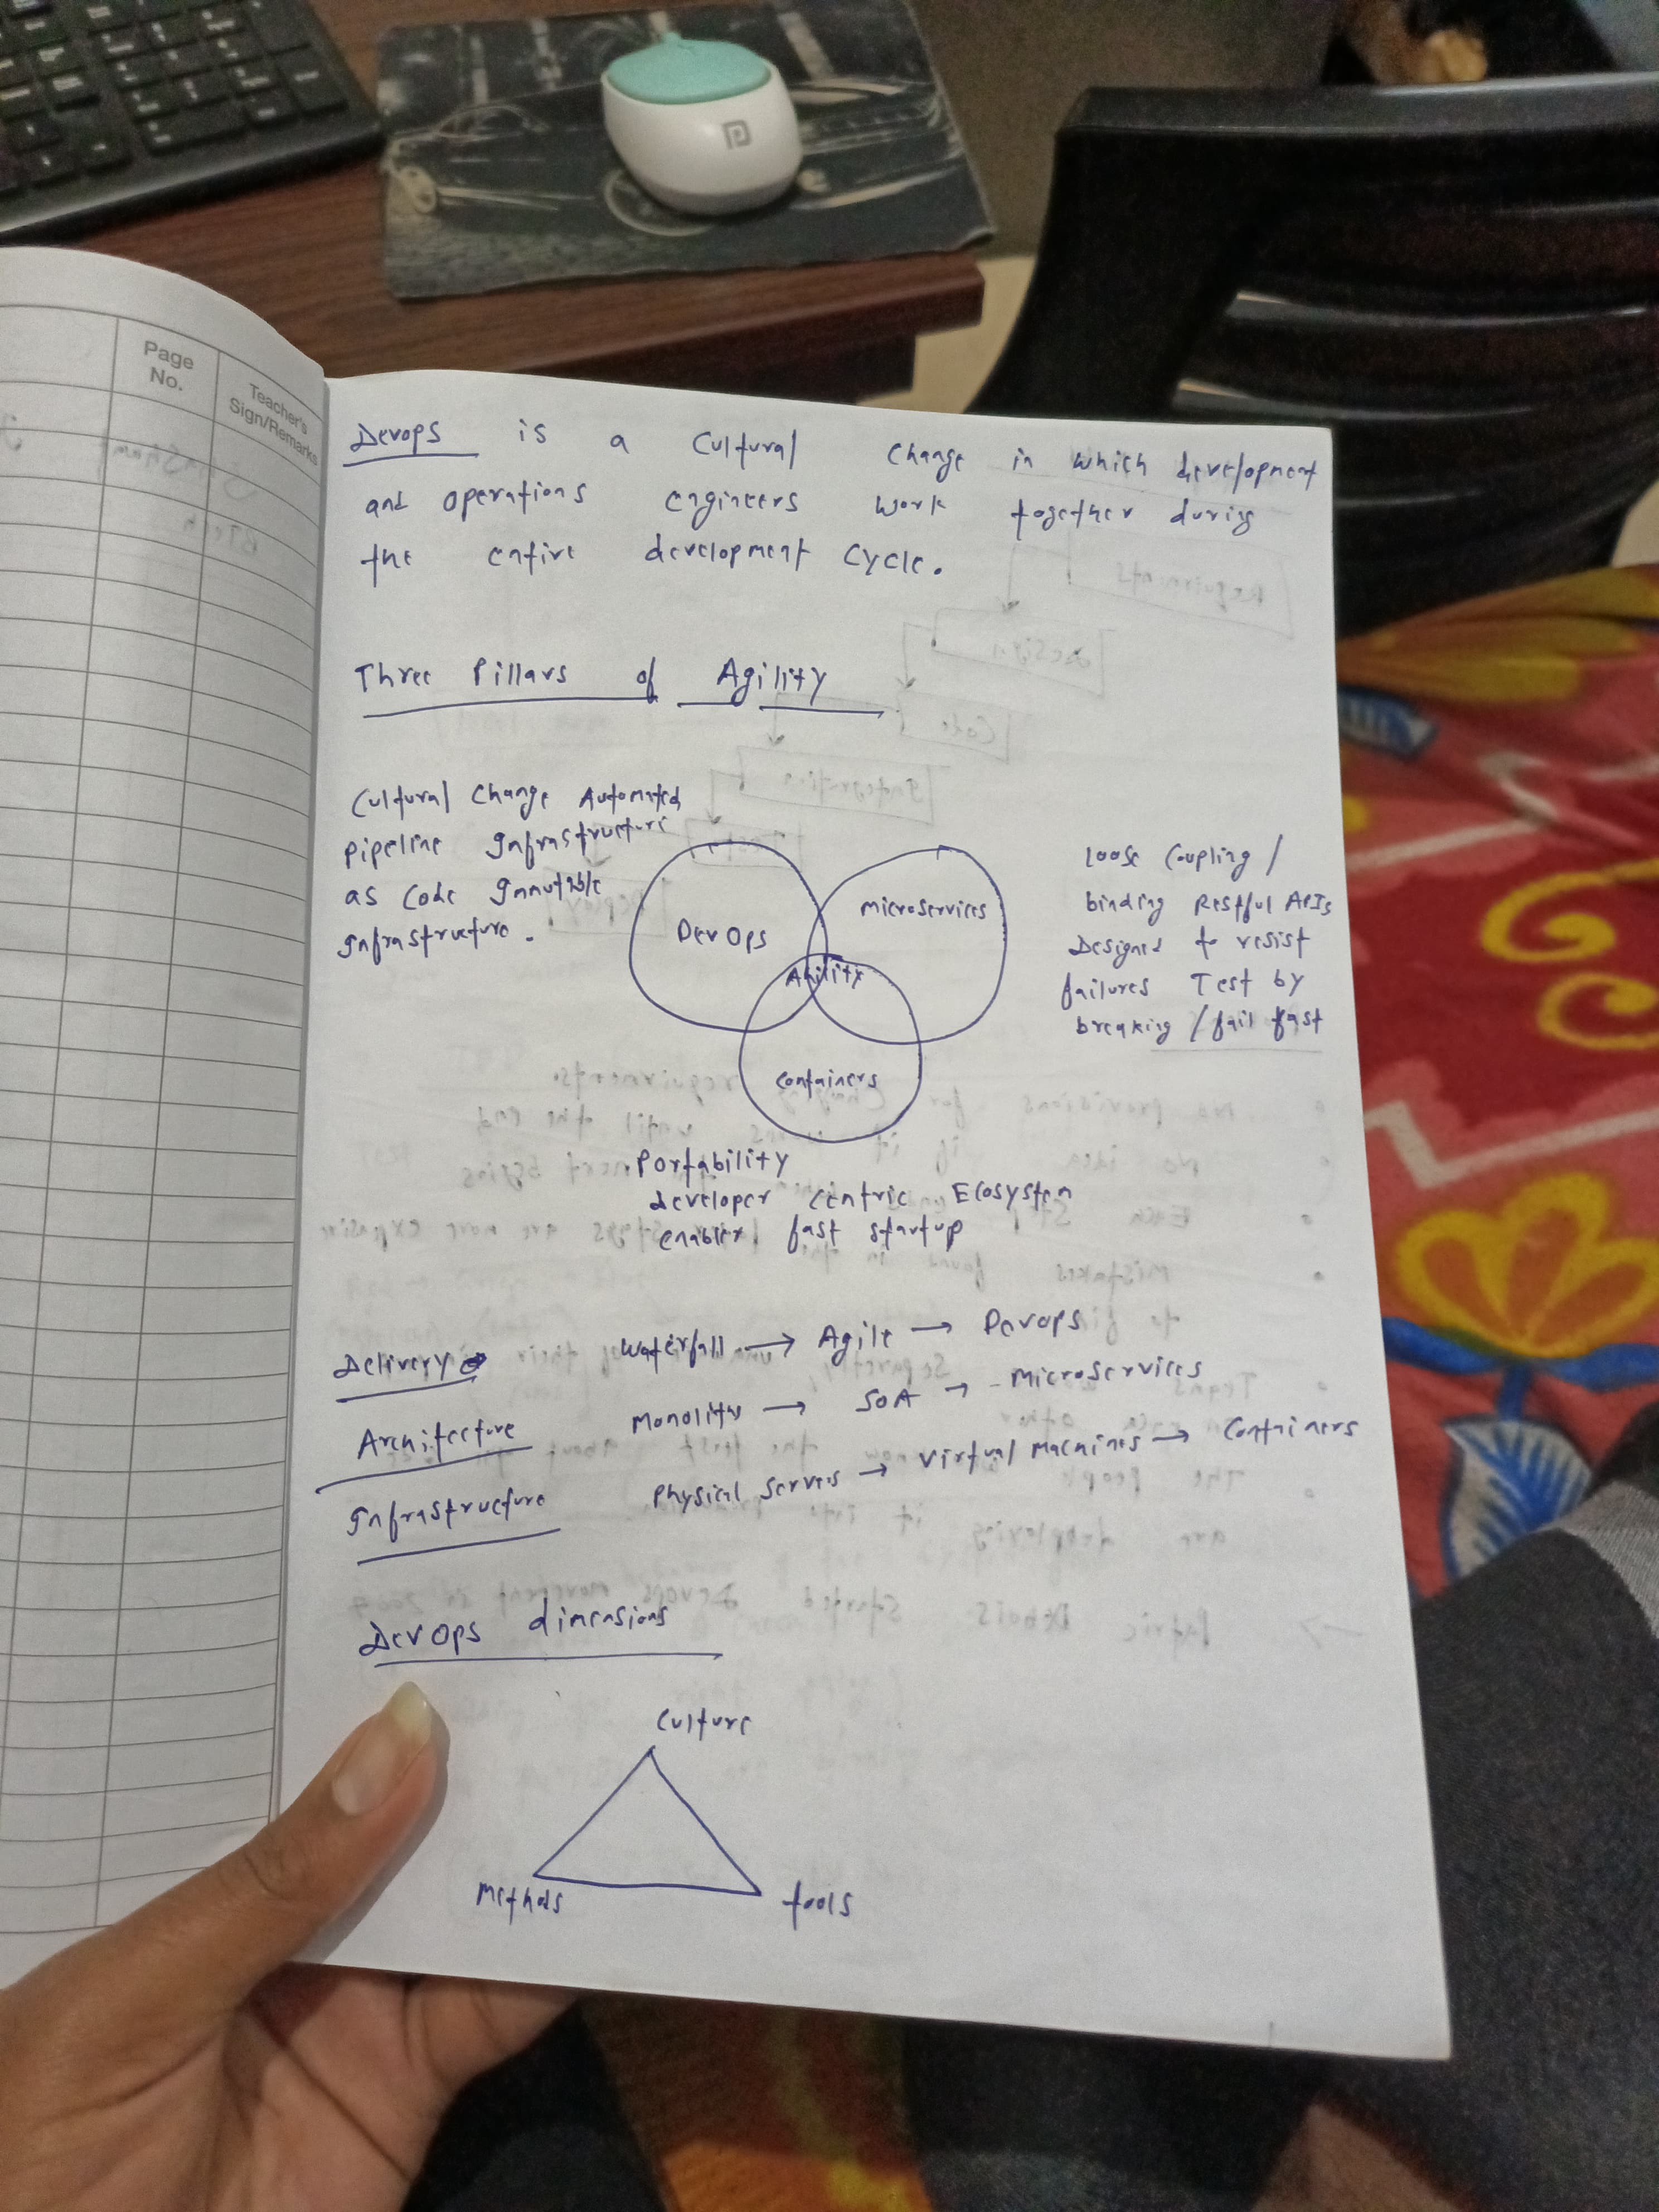 Page
No.
Teacher's
Sign/Remarks
Devops is a Cultural Change in which development
and operations engineers work together during
the entire development Cycle.
Three Pillars of Agility
Cultural Change Automated
pipeline Infrastructure
as Code Immutable
Infrastructure.
DevOps
Microservices
Agility
Containers
Loose Coupling /
binding Restful APIs
Designed to resist
failures Test by
breaking / fail fast
Portability
developer Centric Ecosystem
enabler fast startup
Delivery
Waterfall → Agile → Devops
Architecture
Monolith → SOA → Microservices
Infrastructure
Physical Servers → Virtual Machines → Containers
DevOps dimensions
Culture
Methods
tools